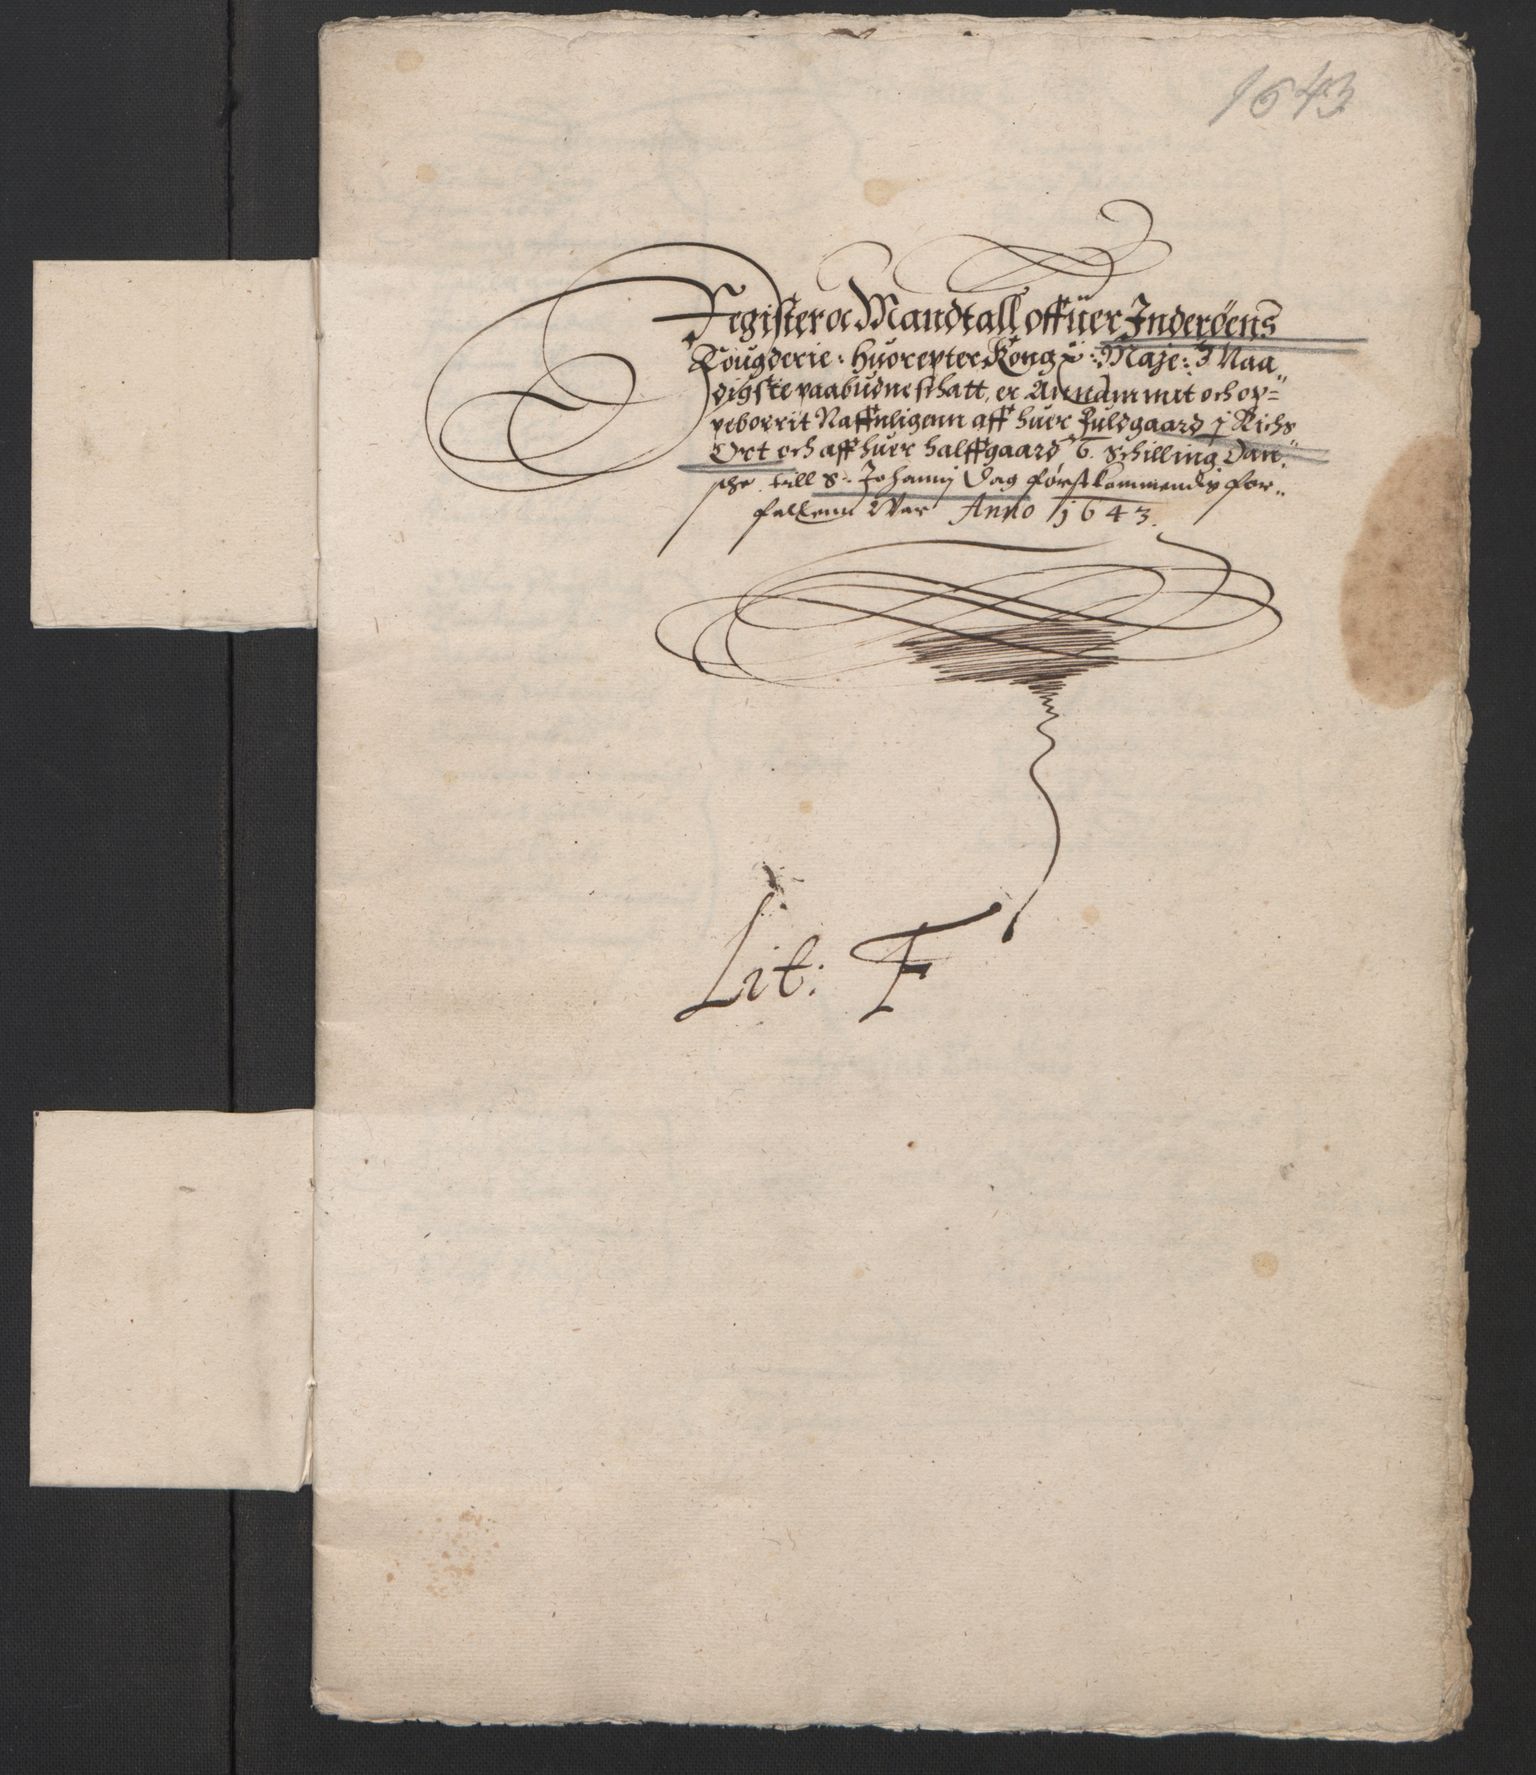 1643
Register oc Mandtall offuer Inderøens
Fougderie: huorepter Kong: Maje: Naa„
digste paabudne schatt, er Annammit och op=
peborrit Naffnligenn aff huer fuldgaard j Richs
Ort och aff huer halffgaard 6. schilling Dan„
sche, till S: Johannj Dag førstkommendis for„
fallenn War Anno 1643.
Lit: F